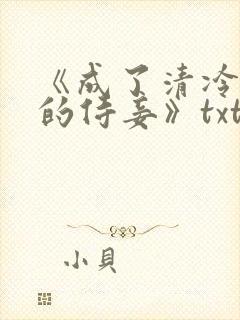 《成了清冷
的侍妾》txt
小貝